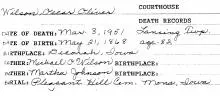 COURTHOUSE
Wilson, Oscar Oliver
DEATH RECORDS
DATE OF BIRTH: Mar 3, 1851 Lansing Twp.
DATE OF DEATH: May 31, 1968 age-82
BIRTHPLACE: Decorah, Iowa
FATHER: Michael O Wilson BIRTHPLACE:
MOTHER: Martha Johnson BIRTHPLACE:
BURIAL: Pleasant Hill Cem. Mona, Iowa